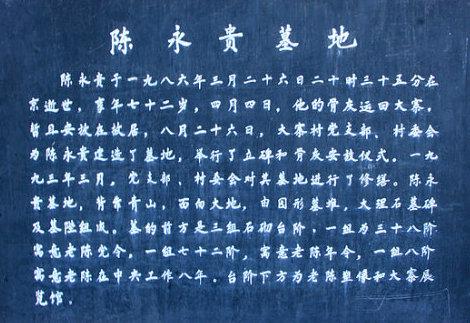 陈永贵墓地
陈永贵于一九八六年三月二十六日二十时三十五分在
京逝世，享年七十二岁，四月四日，他的骨灰运回大寨，
暂且安放在故居，八月二十六日，大寨村党支部、村委会
为陈永贵建造了墓地，举行了立碑和骨灰安放仪式。一九
九三年三月，党支部、村委会对其墓地进行了修缮。陈永
贵墓地，背靠青山，面向大地，由圆形墓堆，大理石墓碑
及基陛组成。墓的前方是三组石砌台阶，一组为三十八阶
寓意老陈党令，一组七十二阶，寓意老陈年令，一组八阶
寓意老陈在中央工作八年。台阶下方为老陈塑像和大寨展
览馆。